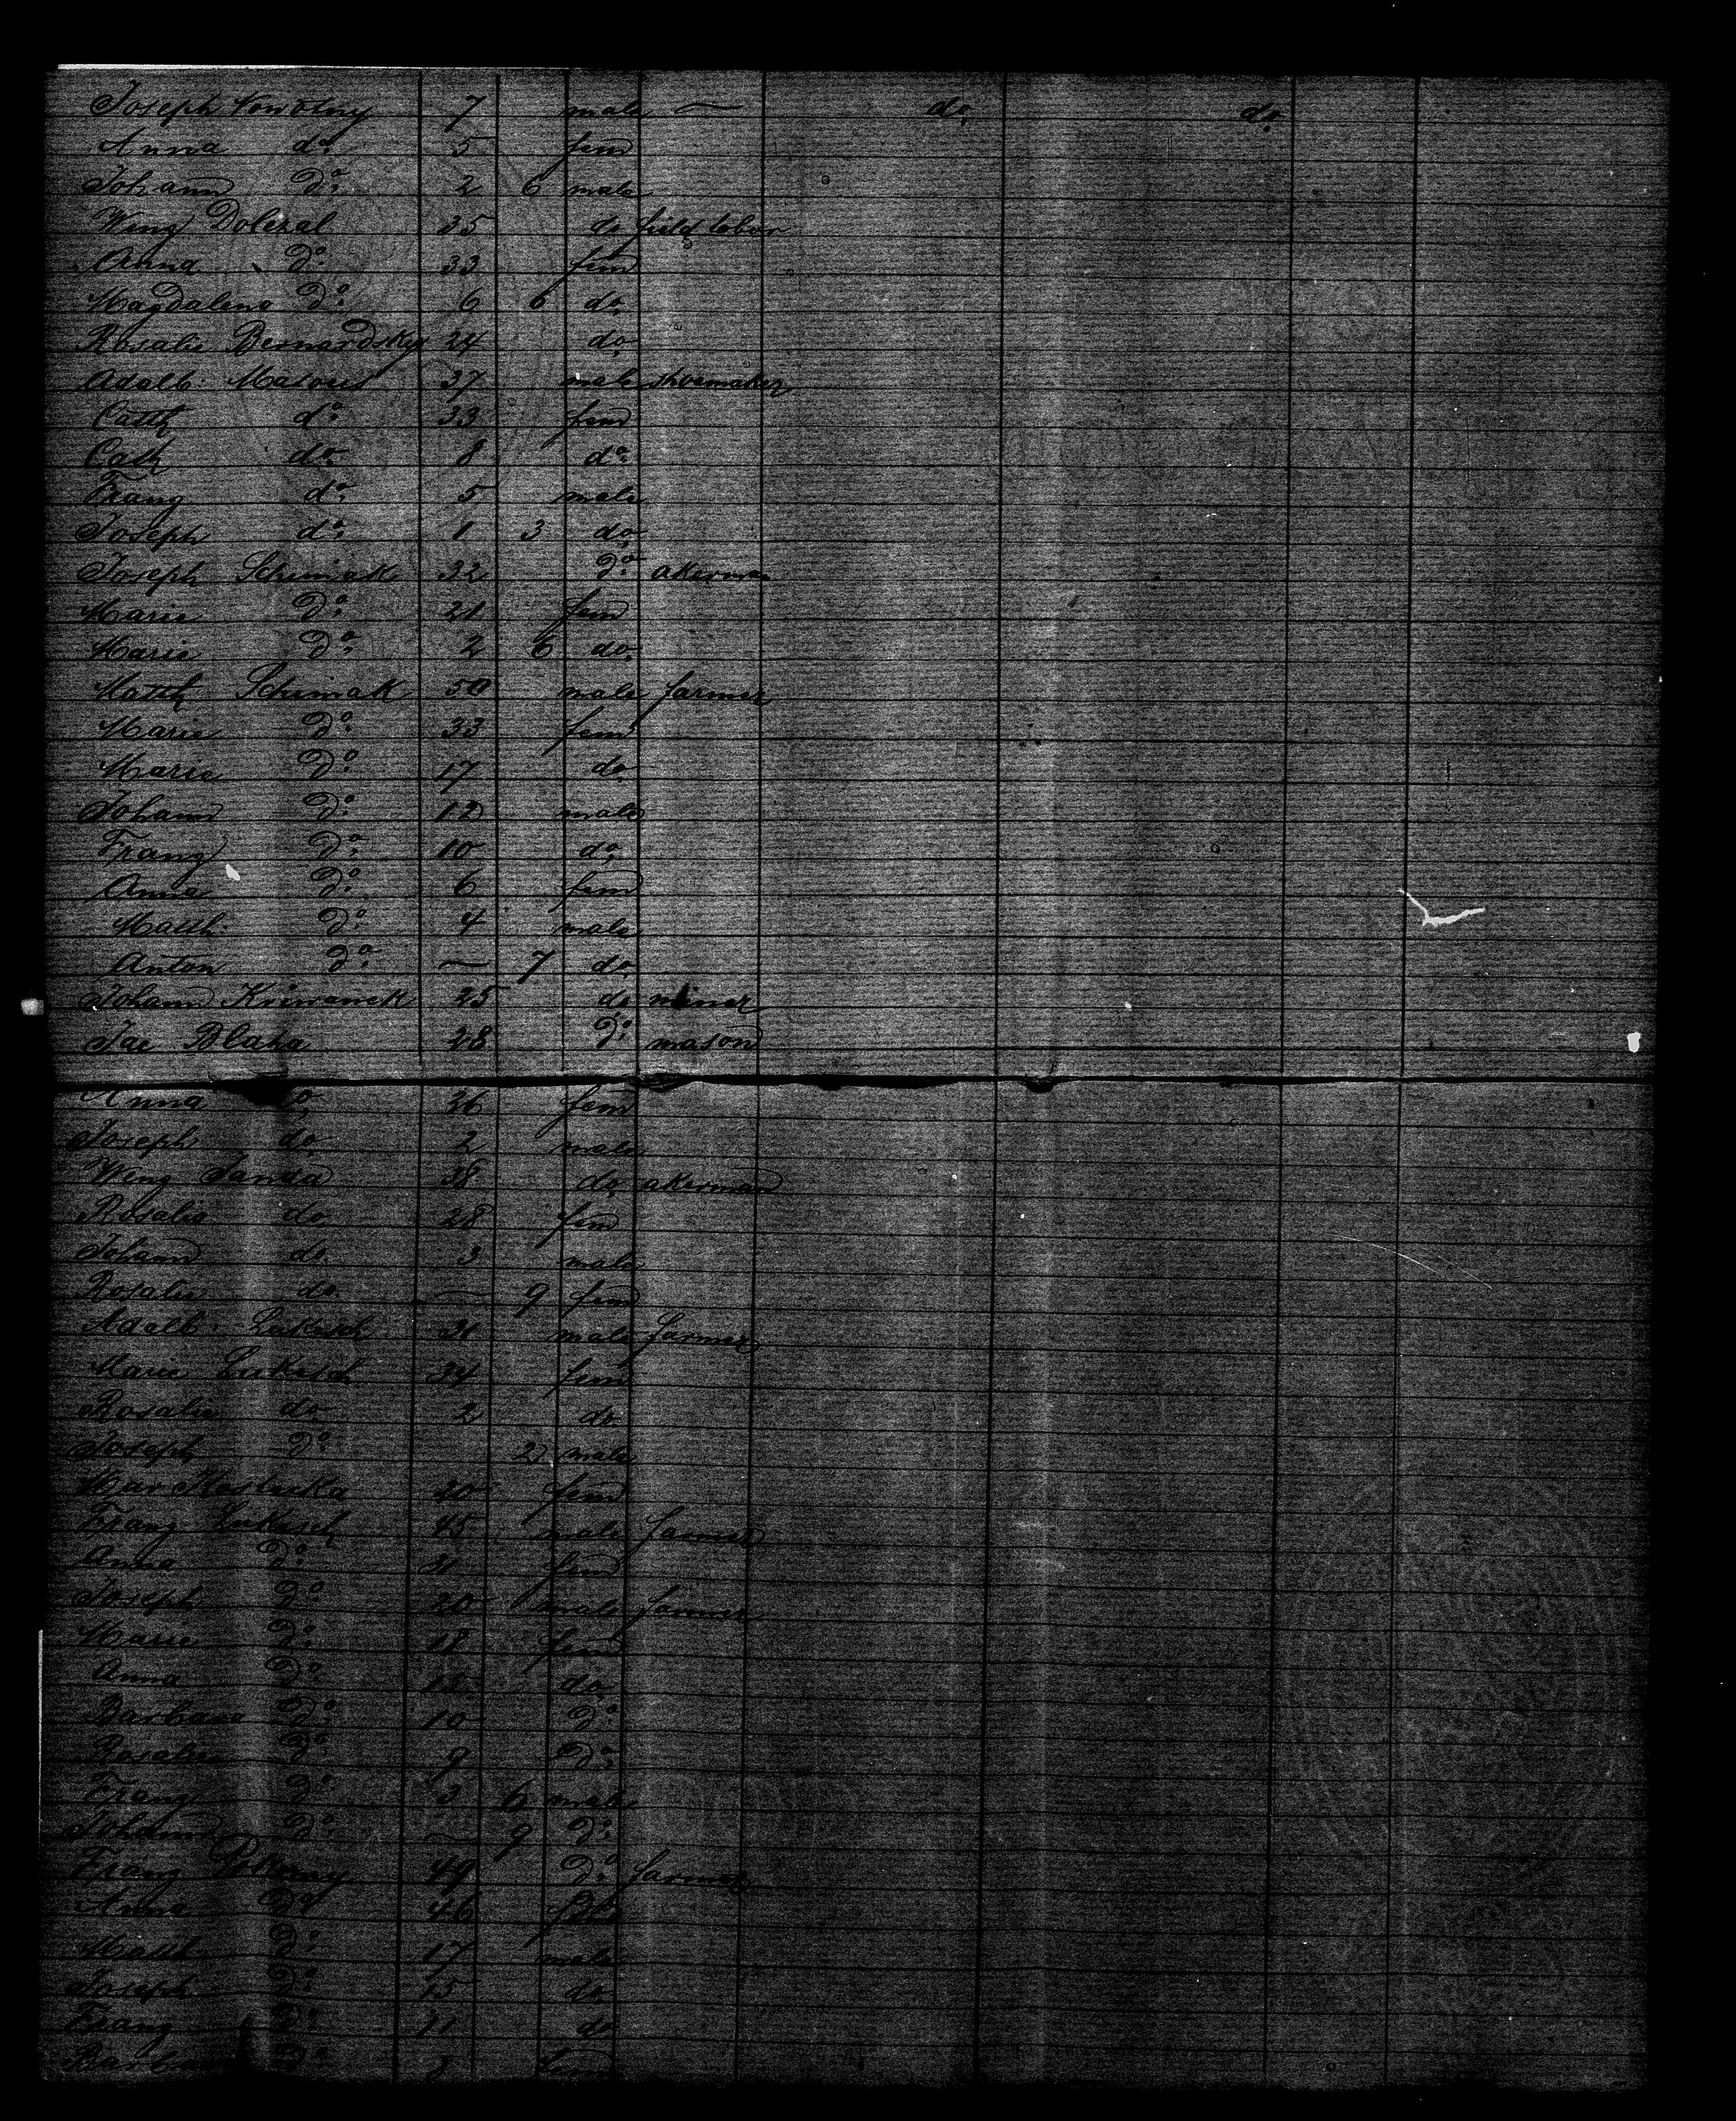 Joseph Nowotny 7 male — do. do.
Anna do. 5 fem
Johann do. 2 6 male
Wenz Dolezal 35 do field labor
Anna do. 33 fem
Magdalena do. 6 6 do.
Rosalie Bernardsky 24 do
Adalb: Matous 37 male shoemaker
Cath do. 33 fem
Cath do. 8 do.
Franz do. 5 male
Joseph do. 1 3 do.
Joseph Schimak 32 do. akerman
Marie do. 21 fem
Marie do. 2 6 do.
Matth Schimak 50 male farmer
Marie do. 33 fem
Marie do. 17 do.
Johann do. 12 male
Franz do. 10 do.
Anna do. 6 fem
Matth: do. 4 male
Anton do. — 7 do.
Johann Kriwanek 25 do. miner
Jac Blaha 28 do. mason
Anna do. 26 fem
Joseph do. 2 male
Wenz Janda 38 do. akerman
Rosalie do. 28 fem
Johann do. 3 male
Rosalie do. — 9 fem
Adalb: Lukesch 31 male farmer
Marie Lukesch 34 fem
Rosalie do. 2 do
Joseph do. 2 male
Mar 20 fem
Franz Lukesch 45 male farmer
Anna do. fem
Joseph do. 20 male farmer
Marie do. 18 fem
Anna do. 15 do.
Barbara do. 10 do.
Rosalie do. 9 do.
Franz do. 3 6 male
Johann do. — 9 do.
Franz 49 do. farmer
Anna do 46 fem
Matth do. 17 male
Joseph do. 15 do
Franz do. 11 do
Barbara do. 8 fem